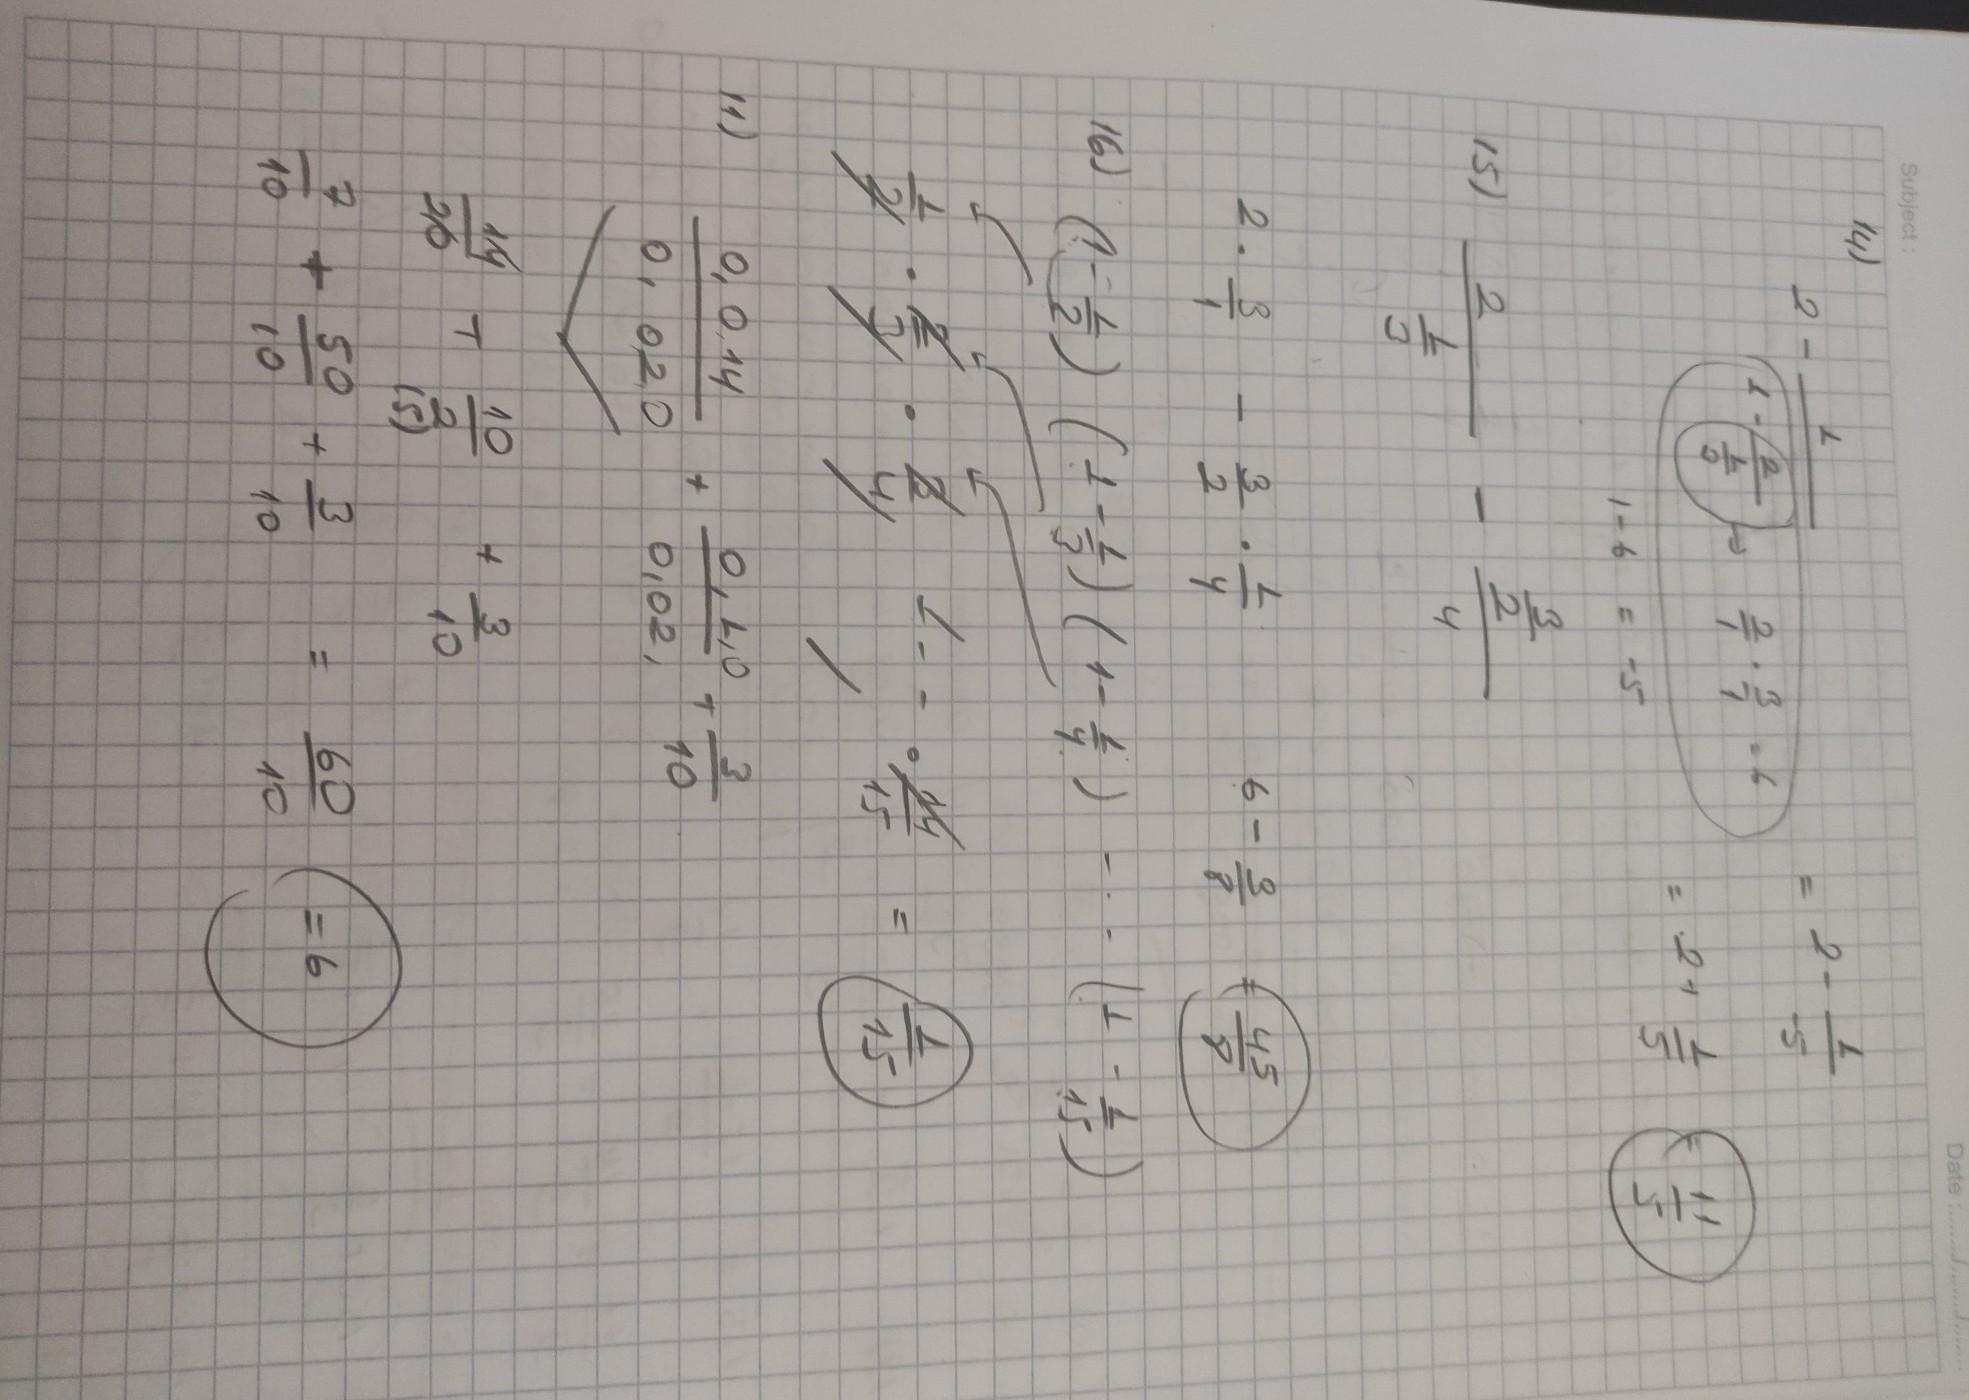 Subject :
Date :
14) 2 - 1/(1 - 2/(1/3)) = 2 - 1/-5
→ 2/1 . 3/1 = 6
1 - 6 = -5
= 2 + 1/5 = 11/5
15) 2/(1/3) - (3/2)/4
2 . 3/1 - 3/2 . 1/4 6 - 3/8 = 45/8
16) (1 - 1/2) (1 - 1/3) (1 - 1/4) - - - (1 - 1/15)
1/2 . 2/3 . 3/4 1 - - . 14/15 = 1/15
11) 0,014/0,020 + 0,1,0/0,02, + 3/10
14/20 + 10/2 + 3/10
(5)
7/10 + 50/10 + 3/10 = 60/10 = 6